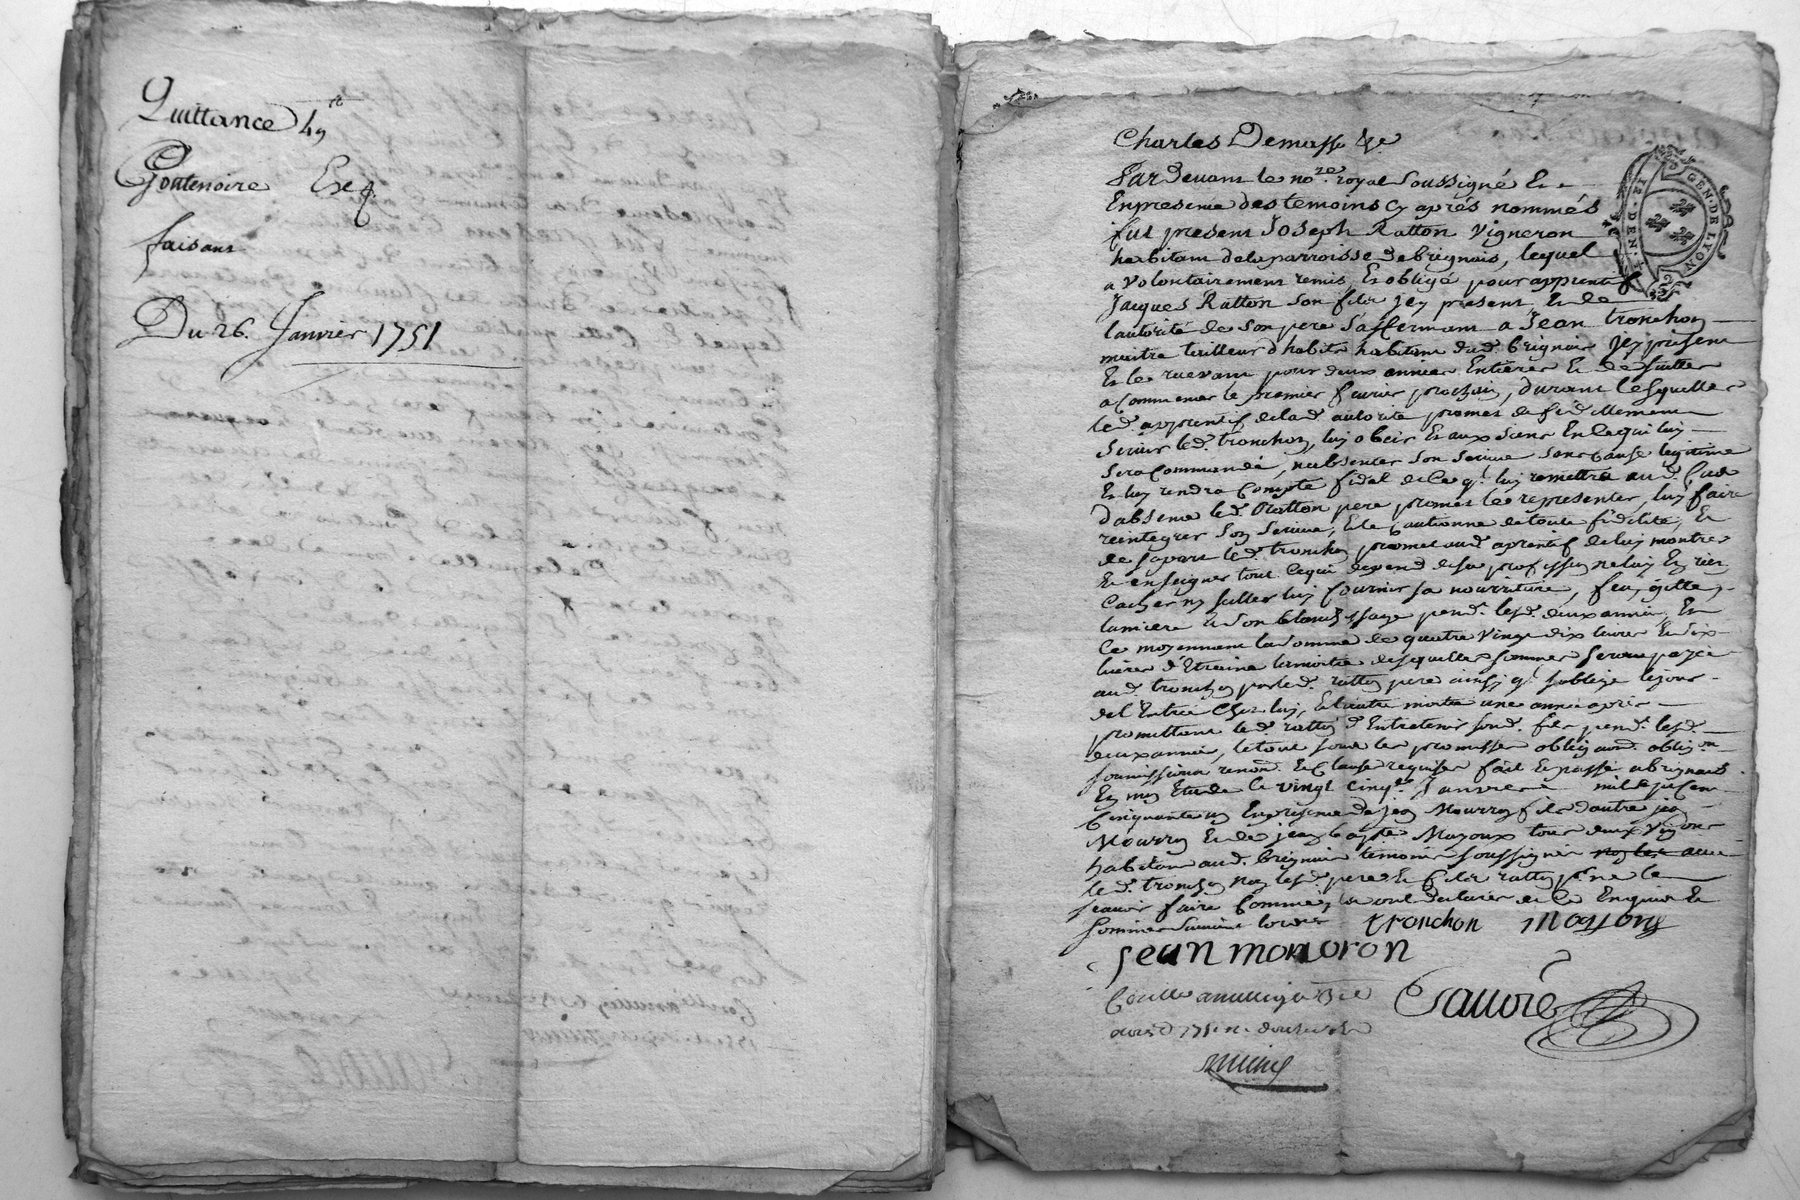 Quittance
Goutenoire
faisant
Du 26. Janvier 1751
Charles Demasso &c.
Pardevant le no.re royal soussigné Et
En presence des temoins cy aprés nommés
fut present Joseph Ratton vigneron
habitant de la parroisse de brignais, lequel
a volontairement remis et obligé pour apprentif
Jacques Ratton son fils icy present Et de
l'autorité de son pere s'affermant a Jean tronchon
maitre tailleur d'habits habitant dud. brignais icy present
Et le recevant pour deux années Entieres Et de suittes
a Commencer le premier fevrier prochain, durant lesquelles
led. apprentif de lad. autorité promet de fidellement
servir led. tronchon, luy obeir Et aux siens En ce qui luy
sera Commandé, n'absenter son service sans cause legitime
Et luy rendra Compte fidel de ce q. luy remettra aud. Cas
d'absence led. Ratton pere promet le representer, luy faire
reintegrer son service, Et le Cautionne de toute fidelité, Et
de sa part led. tronchon promet aud. aprentif de luy montrer
Et enseigner tout Ce qui depend de sa profession ne luy En rien
Cacher ny luy fournir sa nourriture, feu, gitte,
lumiere Et son blanchissage pend.t lesd. deux années, Et
Ce moyennant la somme de quatre vingt dix livres Et six
livres d'Etraine la moitié desquelles sommes sera payée
aud. tronchon par led. ratton pere ainsy q. s'oblige le jour
de l'Entrée Chez luy, Et l'autre moitié une année aprés
promettant led. ratton d'Entretenir sond. fils pend.t lesd.
deux années, le tout sous les promisses oblig.on
soumissions renon. Et Clauses requises fait Et passé a brignais
En mon Etude le vingt cinq.e Janvier mil sept Cent
Cinquante un En presence de jean Mourron fils d'autre jean
Mourron Et de jean baptiste Mayoux tous deux vignerons
habitans aud. brignais temoins soussignés
led. tronchon non lesd. pere Et fils ratton p.r ne le
scavoir faire Comme ils ont declaré de Ce Enquis Et
sommés suivant l'ord.ce tronchon
jean
Controllé
1751